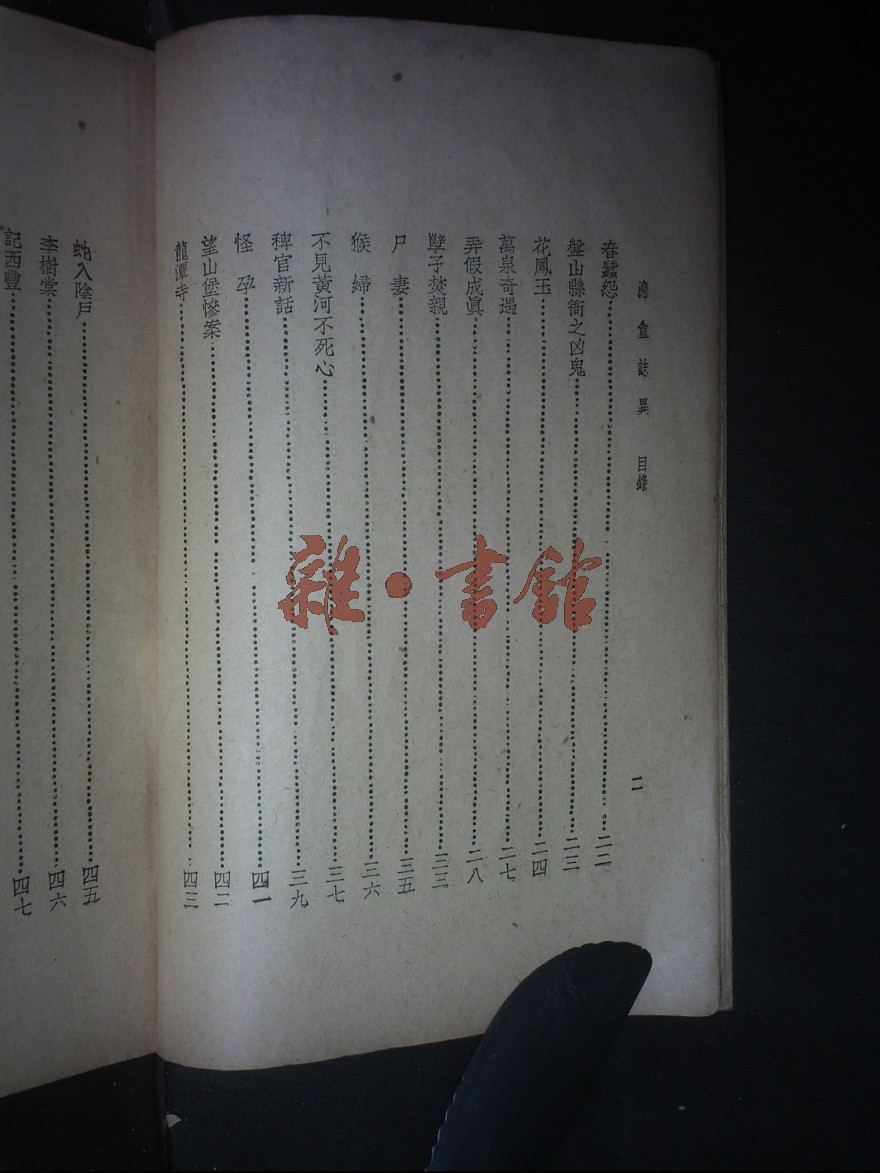 盦誌異 目錄
二
春蠶怨 二二
盤山縣衙之凶鬼 二三
花鳳玉 二四
萬泉奇遇 二七
弄假成眞 二八
孽子焚親 三三
尸妻 三五
猴婦 三六
不見黃河不死心 三七
稗官新話 三九
怪孕 四一
望山堡慘案 四二
龍潭寺 四三
蛇入陰戶 四五
李樹棠 四六
記西豐 四七
雜·書館